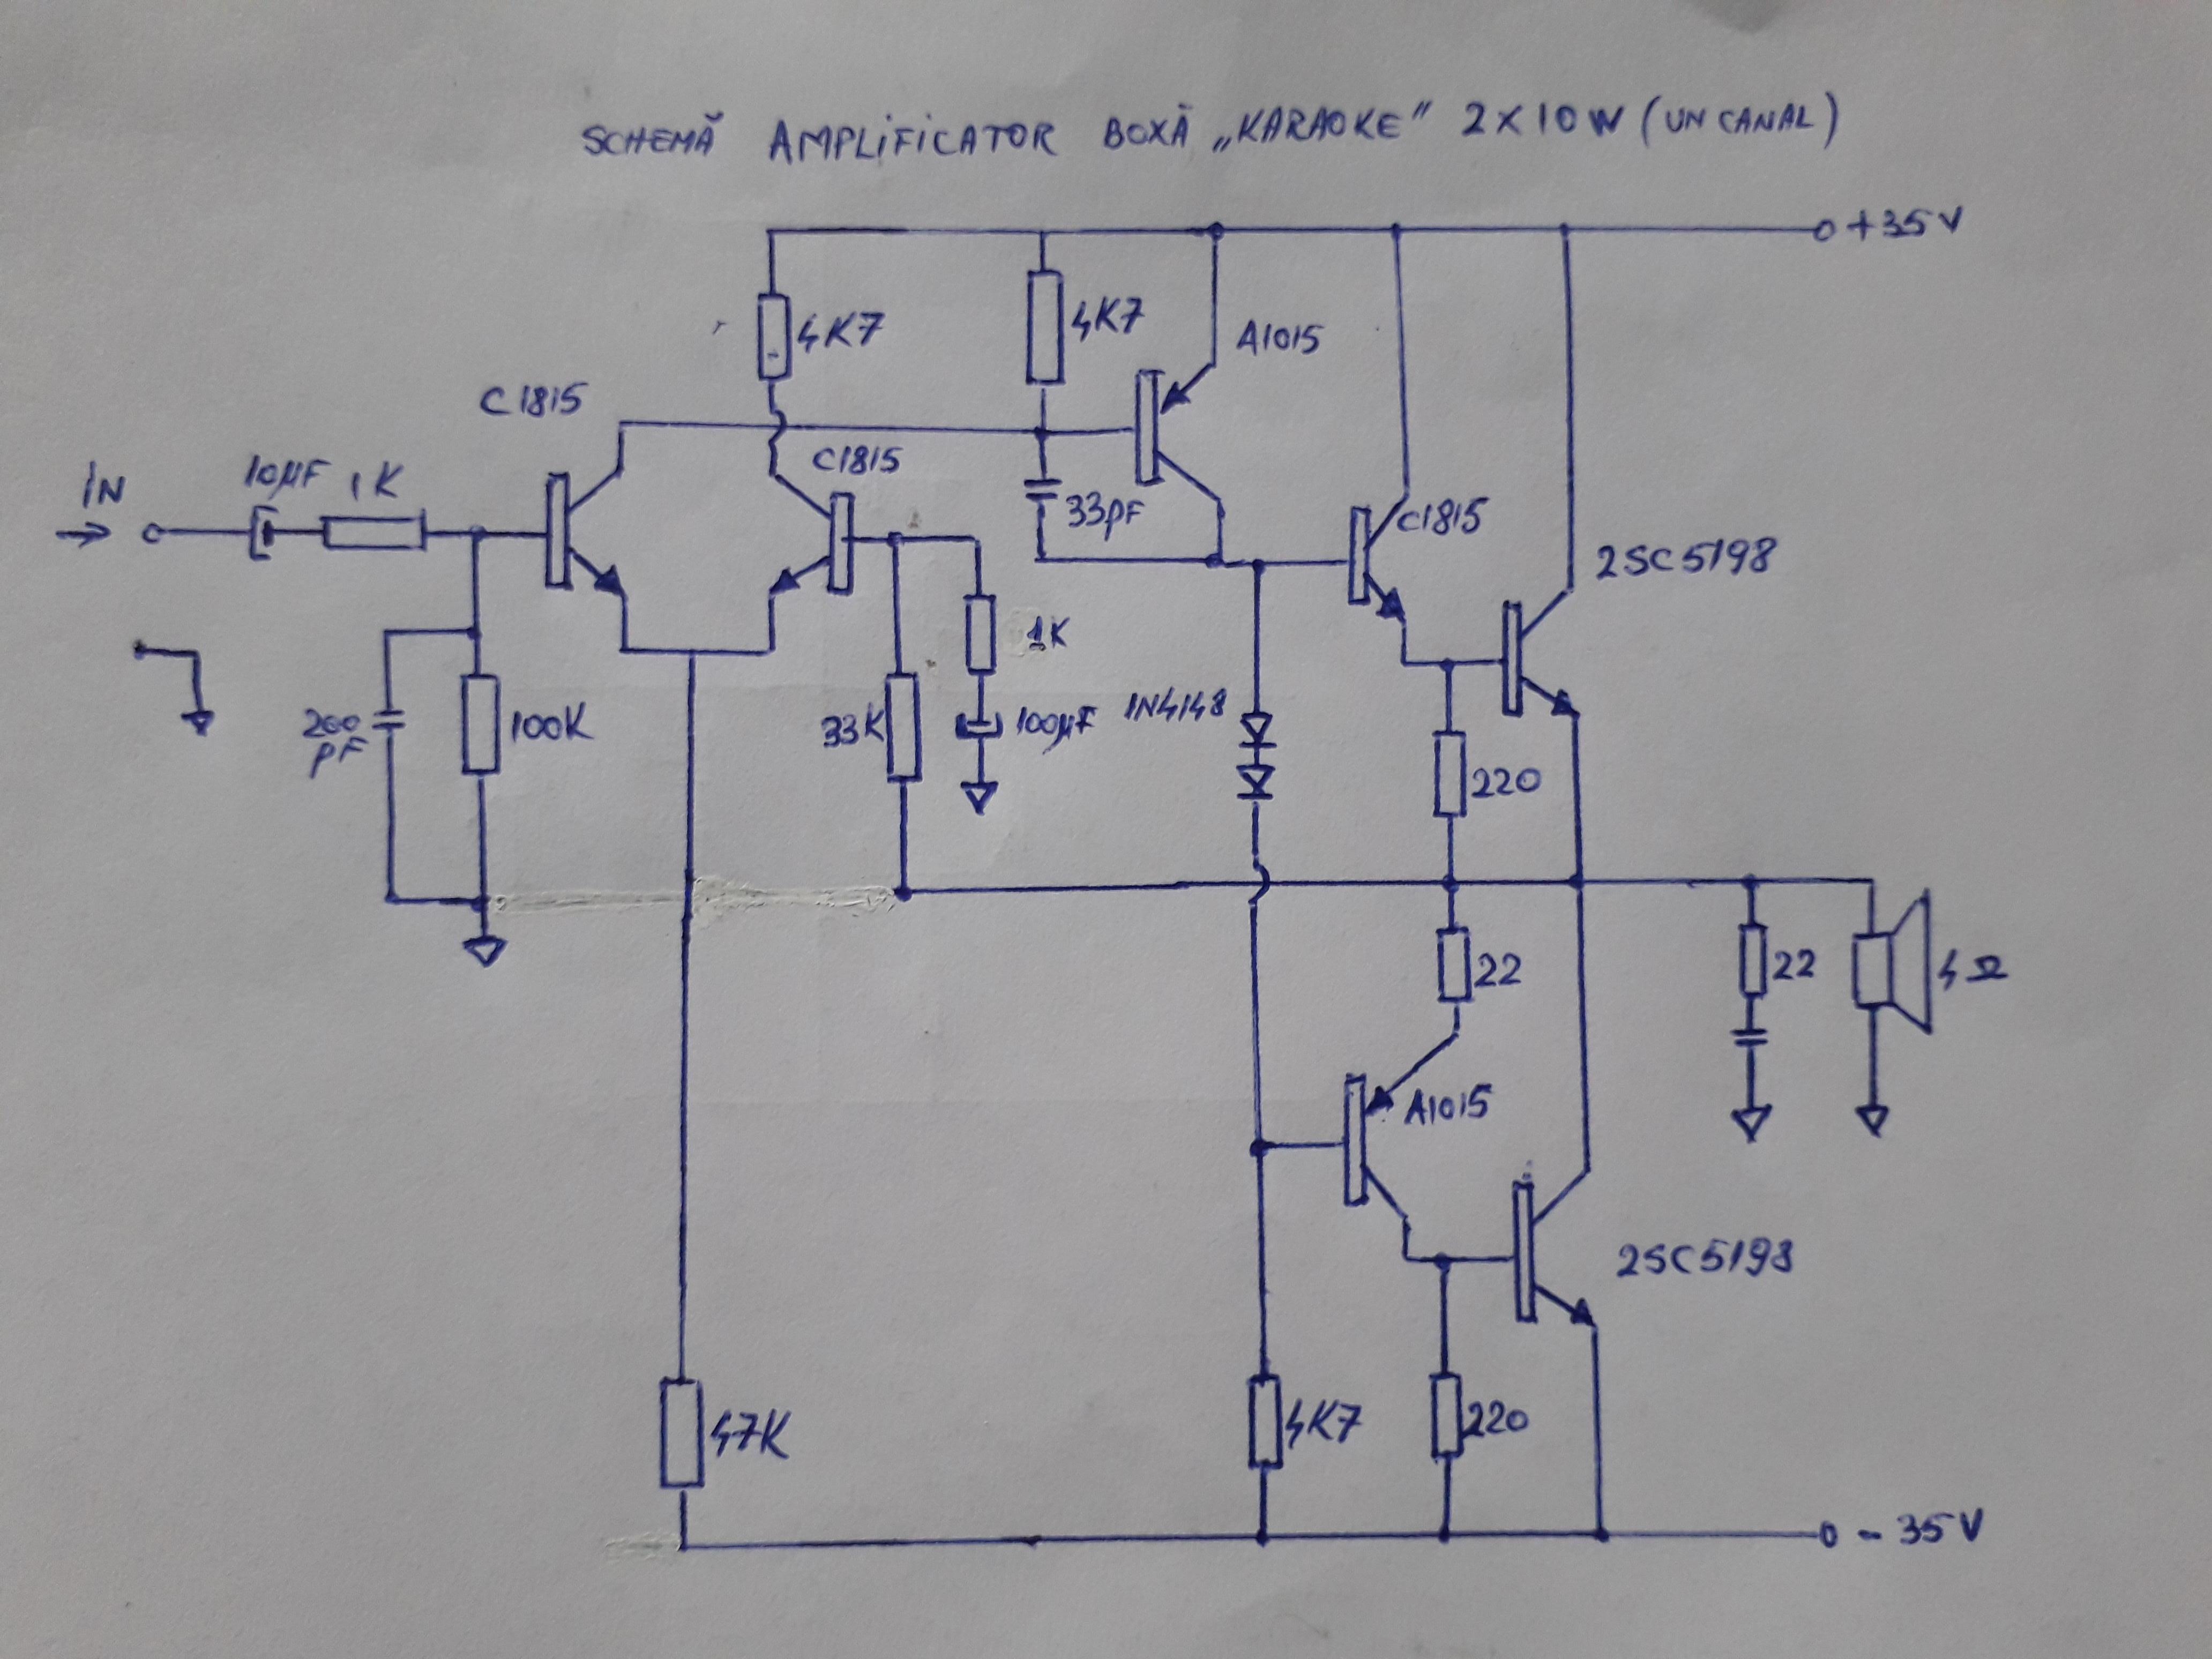 SCHEMĂ AMPLIFICATOR BOXĂ „KARAOKE" 2X10W (UN CANAL)
+35V
4K7
4K7
A1015
C1815
C1815
IN
10µF
1K
33pF
C1815
2SC5198
1K
200
pF
100K
33K
100µF
1N4148
220
22
22
4Ω
A1015
2SC5198
47K
4K7
220
- 35V